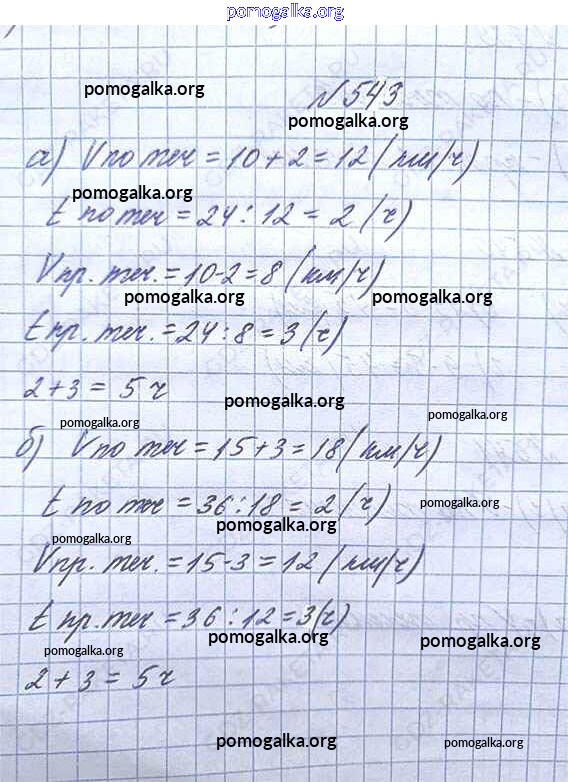 pomogalka.org
pomogalka.org
№ 543
pomogalka.org
а) Vпо теч = 10 + 2 = 12 (км/ч)
pomogalka.org
t по теч = 24 : 12 = 2 (ч)
Vпр. теч. = 10-2 = 8 (км/ч)
pomogalka.org pomogalka.org
t пр. теч. = 24 : 8 = 3 (ч)
2 + 3 = 5 ч
pomogalka.org
pomogalka.org pomogalka.org
б) Vпо теч = 15 + 3 = 18 (км/ч)
t по теч = 36 : 18 = 2 (ч)
pomogalka.org
pomogalka.org
pomogalka.org
Vпр. теч. = 15-3 = 12 (км/ч)
pomogalka.org
t пр. теч = 36 : 12 = 3 (ч)
pomogalka.org pomogalka.org
pomogalka.org
2 + 3 = 5 ч
pomogalka.org pomogalka.org